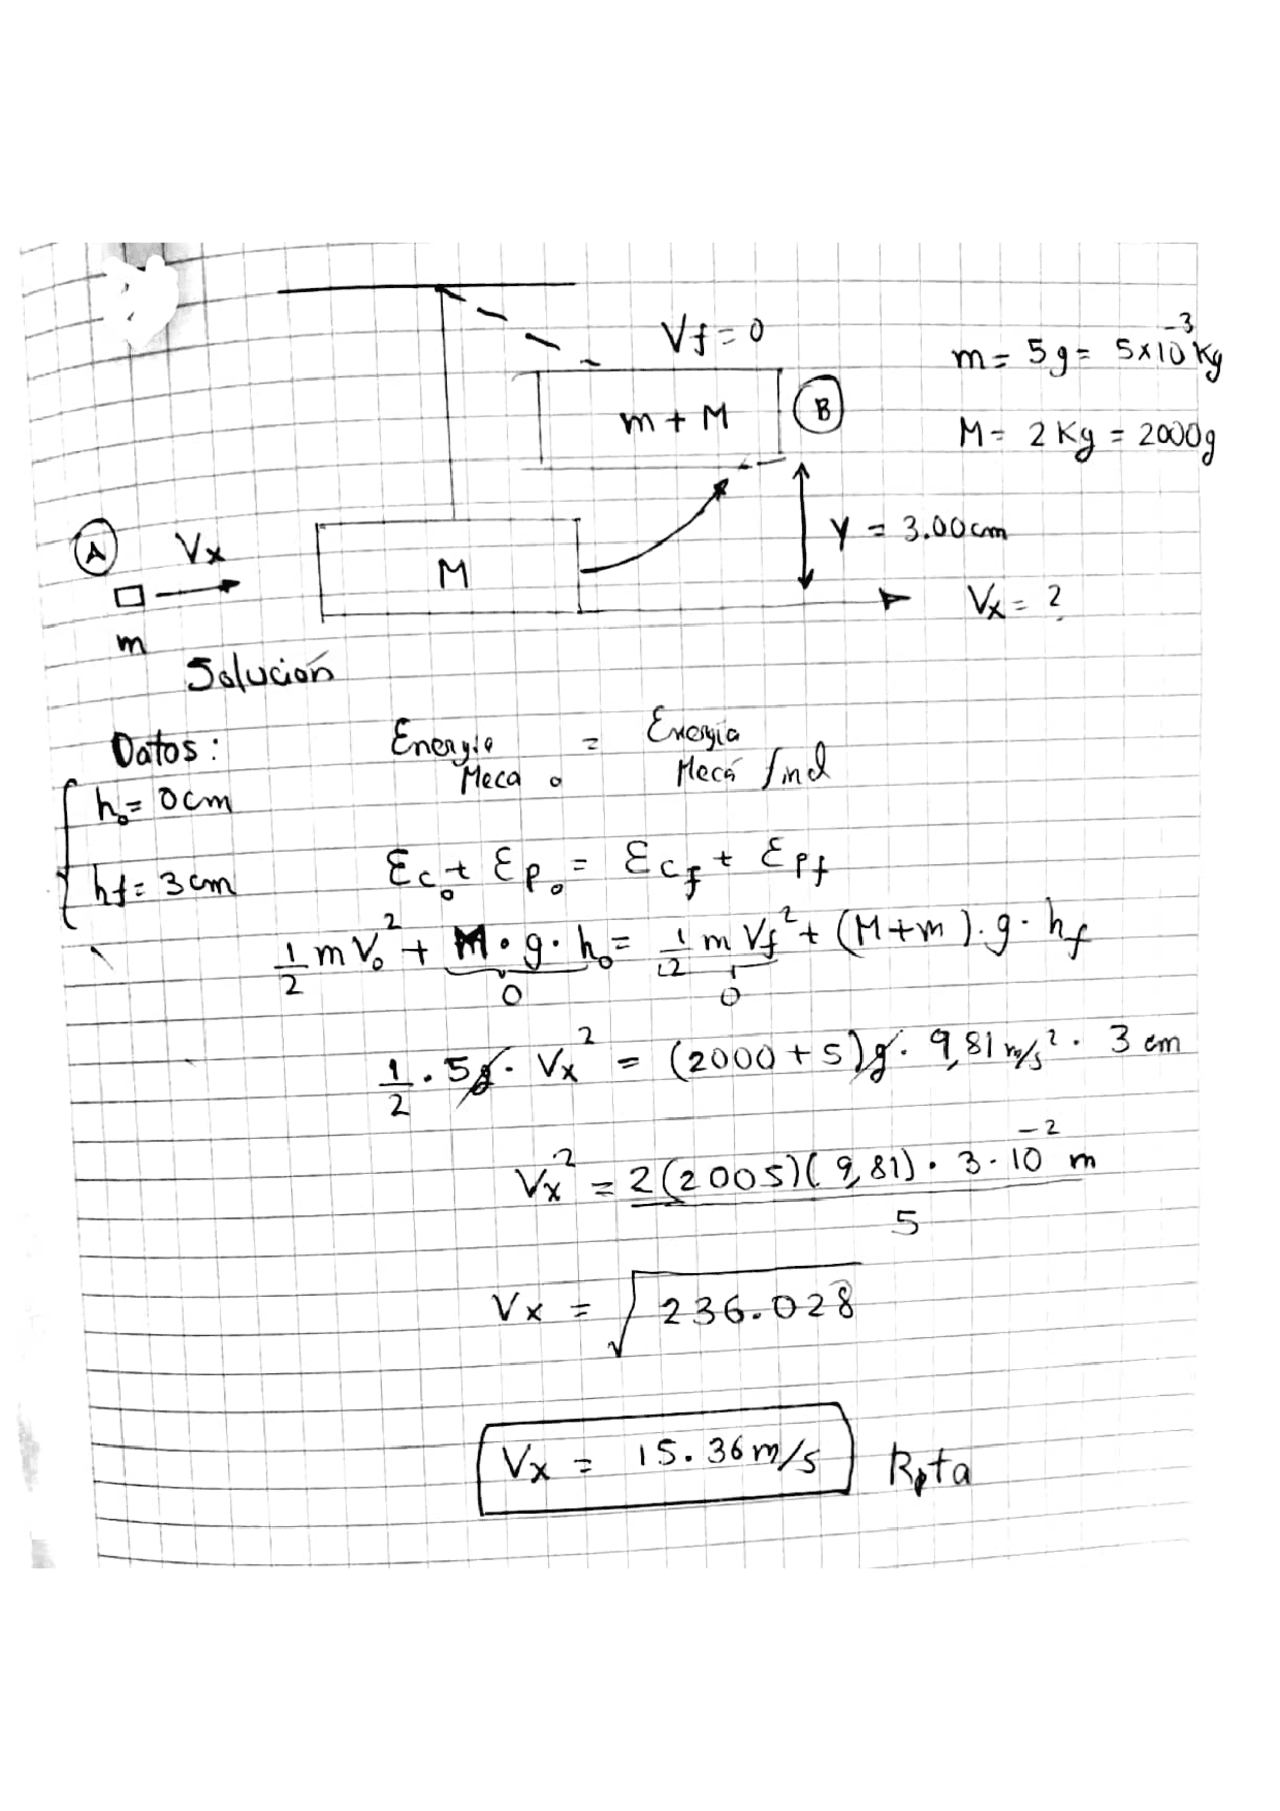 Vf = 0
m = 5g = 5x10⁻³ Kg
m + M
B
M = 2 Kg = 2000g
A
Vx
M
y = 3.00cm
Vx = ?
m
Solución
Datos:
Energía Meca₀ = Energía Mecá final
h₀ = 0cm
hf = 3cm
Ec₀ + Ep₀ = Ecf + Epf
1/2 m V₀² + M · g · h₀ = 1/2 m Vf² + (M+m) · g · hf
0 0
1/2 · 5g · Vx² = (2000 + 5)g · 9,81 m/s² · 3 cm
Vx² = 2(2005)(9,81) · 3 · 10⁻² m / 5
Vx = √236.028
Vx = 15.36 m/s Rpta